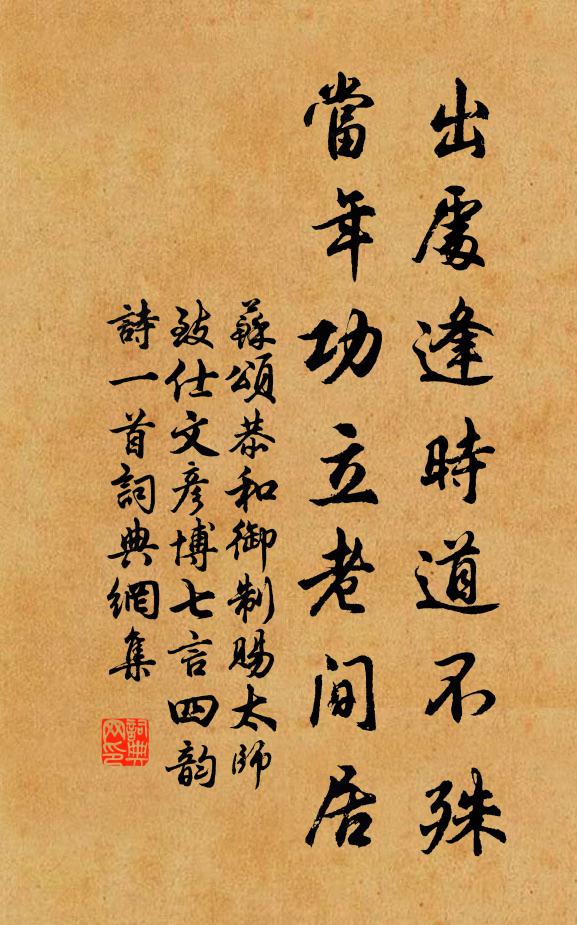 出處逢時道不殊
當年功立老间居
蘇頌恭和御制賜太師
致仕文彥博七言四韵
詩一首詞典網集
詞典
网印